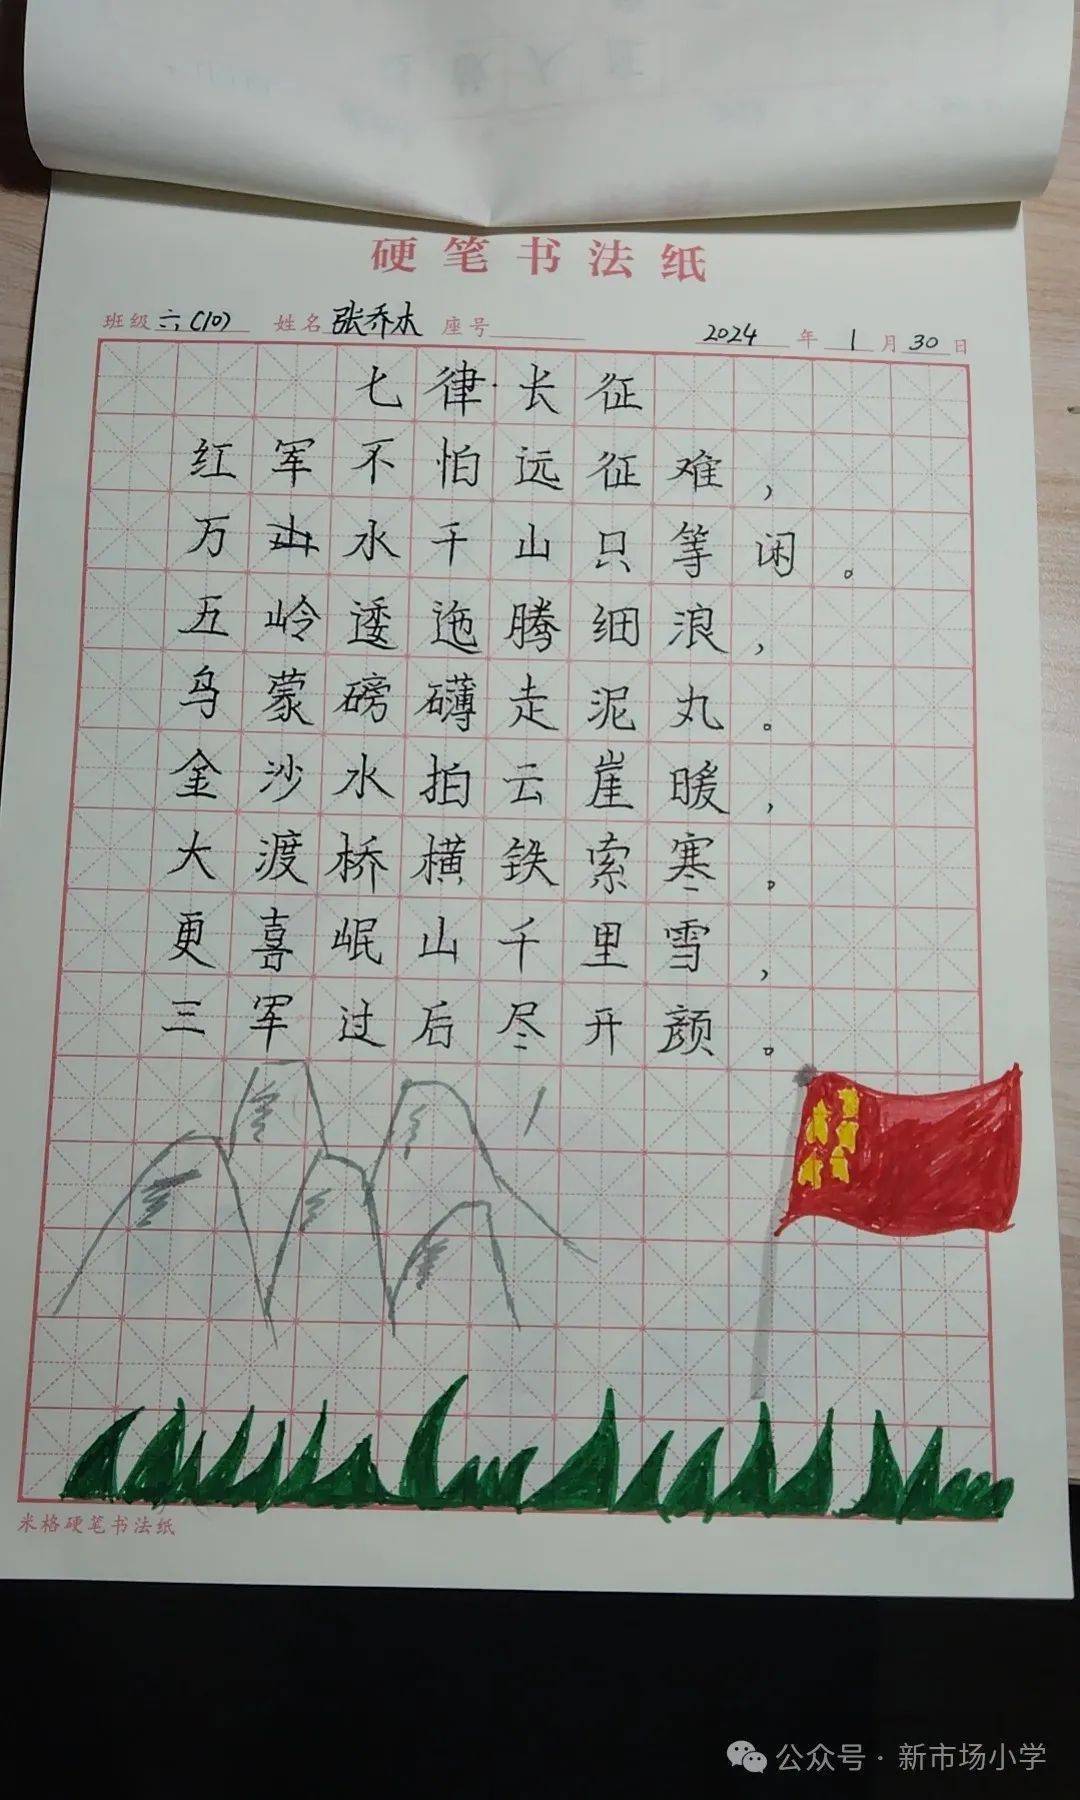 硬笔书法纸
班级 六(10) 姓名 张乔木 座号 2024 年 1 月 30 日
七律·长征
红军不怕远征难，
万水千山只等闲。
五岭逶迤腾细浪，
乌蒙磅礴走泥丸。
金沙水拍云崖暖，
大渡桥横铁索寒。
更喜岷山千里雪，
三军过后尽开颜。
米格硬笔书法纸
公众号·新市场小学